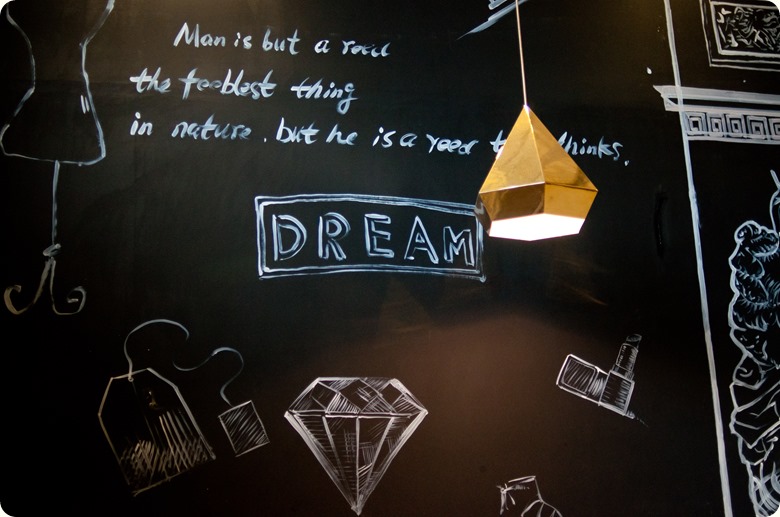 Man is but a reed
the feeblest thing
in nature. but he is a reed thinks.
DREAM